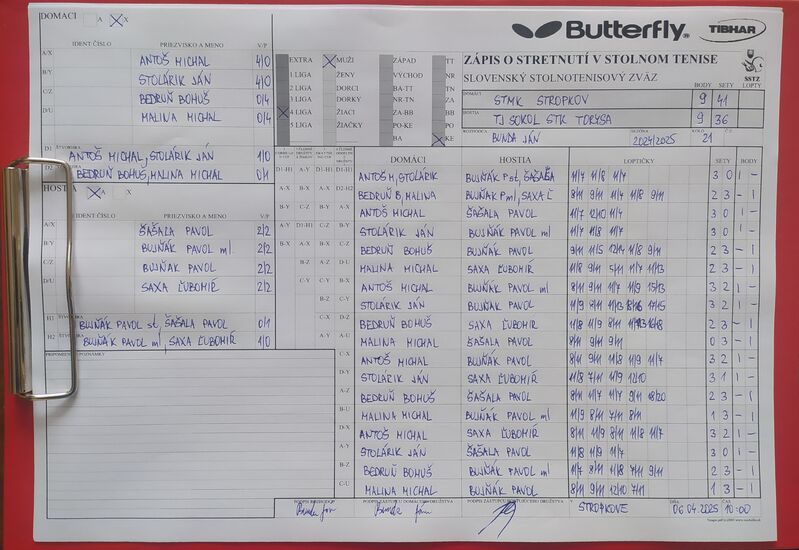 DOMÁCI A X
Butterfly TIBHAR
IDENT ČÍSLO PRIEZVISKO A MENO V/P
A/X ANTOŠ MICHAL 4/0
B/Y STOLÁRIK JÁN 4/0
C/Z BEDRUŇ BOHUŠ 0/4
D/U MALINA MICHAL 0/4
D1 ŠTVORHRA
ANTOŠ MICHAL, STOLÁRIK JÁN 1/0
D2
BEDRUŇ BOHUŠ, MALINA MICHAL 0/1
HOSTIA A X
IDENT ČÍSLO PRIEZVISKO A MENO V/P
A/X ŠAŠALA PAVOL 2/2
B/Y BUJŇÁK PAVOL ml. 2/2
C/Z BUJŇÁK PAVOL 2/2
D/U SAXA ĽUBOMÍR 2/2
H1
BUJŇÁK PAVOL st, ŠAŠALA PAVOL 0/1
H2
BUJŇÁK PAVOL ml, SAXA ĽUBOMÍR 1/0
PRIPOMIENKY, POZNÁMKY
EXTRA MUŽI ZÁPAD TT
1 LIGA ŽENY VÝCHOD NR
2 LIGA DORCI BA-TT TN
3 LIGA DORKY NR-TN ZA
4 LIGA ŽIACI ZA-BB BB
5 LIGA ŽIAČKY PO-KE PO
BA KE
ZÁPIS O STRETNUTÍ V STOLNOM TENISE
SLOVENSKÝ STOLNOTENISOVÝ ZVÄZ
SSTZ
BODY SETY LOPTY
DOMÁCI STMK STROPKOV 9 41
HOSTIA TJ SOKOL STK TORYSA 9 36
ROZHODCA BUNDA JÁN SEZÓNA 2024/2025 KOLO 21 ČZ
DOMÁCI HOSTIA LOPTIČKY SETY BODY
ANTOŠ M, STOLÁRIK BUJŇÁK P st, ŠAŠALA 11/7 11/8 11/7 3 0 1 -
BEDRUŇ B, MALINA BUJŇÁK P ml, SAXA Ľ 8/11 9/11 11/7 11/8 9/11 2 3 - 1
ANTOŠ MICHAL ŠAŠALA PAVOL 11/7 12/10 11/4 3 0 1 -
STOLÁRIK JÁN BUJŇÁK PAVOL ml 11/7 11/8 11/7 3 0 1 -
BEDRUŇ BOHUŠ BUJŇÁK PAVOL 9/11 11/5 12/14 11/8 9/11 2 3 - 1
MALINA MICHAL SAXA ĽUBOMÍR 11/8 9/11 5/11 11/7 11/13 2 3 - 1
ANTOŠ MICHAL BUJŇÁK PAVOL ml 8/11 9/11 11/7 11/9 15/13 3 2 1 -
STOLÁRIK JÁN BUJŇÁK PAVOL 11/9 8/11 11/13 18/16 17/15 3 2 1 -
BEDRUŇ BOHUŠ SAXA ĽUBOMÍR 11/8 11/9 8/11 2 3 - 1
MALINA MICHAL ŠAŠALA PAVOL 8/11 9/11 9/11 0 3 - 1
ANTOŠ MICHAL BUJŇÁK PAVOL 8/11 9/11 11/8 11/9 11/7 3 2 1 -
STOLÁRIK JÁN SAXA ĽUBOMÍR 11/8 7/11 11/9 12/10 3 1 1 -
BEDRUŇ BOHUŠ ŠAŠALA PAVOL 8/11 11/7 11/7 9/11 18/20 2 3 - 1
MALINA MICHAL BUJŇÁK PAVOL ml 11/9 8/11 7/11 8/11 1 3 - 1
ANTOŠ MICHAL SAXA ĽUBOMÍR 8/11 11/9 8/11 11/8 11/7 3 2 1 -
STOLÁRIK JÁN ŠAŠALA PAVOL 11/8 11/9 11/7 3 0 1 -
BEDRUŇ BOHUŠ BUJŇÁK PAVOL ml 11/7 9/11 11/8 7/11 9/11 2 3 - 1
MALINA MICHAL BUJŇÁK PAVOL 8/11 9/11 12/10 7/11 1 3 - 1
PODPIS ROZHODCU PODPIS ZÁSTUPCU DOMÁCEHO DRUŽSTVA PODPIS ZÁSTUPCU HOSŤUJÚCEHO DRUŽSTVA V STROPKOVE DŇA 06.04.2025 ČAS 10:00
Bunda Ján Bunda Ján